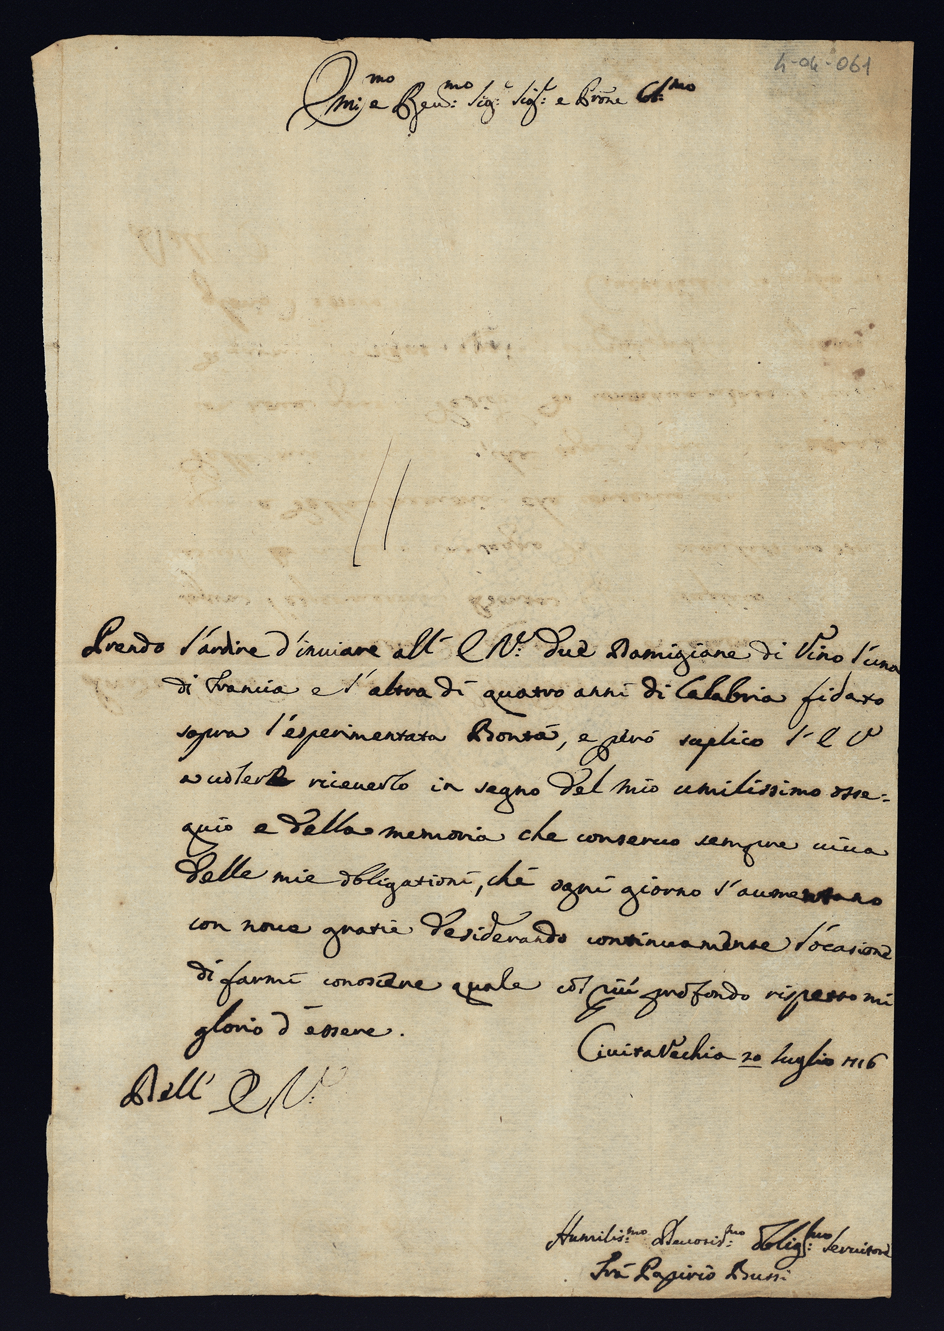 4-04-061
Emi.mo e Reu.mo Sig.r Sig.r e Prone Col.mo
Prendo l'ardire d'inuiare all' E V.: due Damigiane di Vino l'una
di Francia e l'altra di quatro anni di Calabria fidato
sopra l'esperimentata Bontà, e però suplico l'E V
a uolerlo riceuerlo in segno del mio umilissimo osse=
quio e della memoria che conseruo sempre uiua
delle mie obligationi, che ogni giorno s'aumentano
con noue gratie desiderando continuamente l'ocasione
di farmi conoscere quale col più profondo rispetto mi
glorio d'essere.
CiuitaVechia 20 luglio 1716
Dell' E V.:
Humilis:mo Deuotis:mo Oblig:mo Seruitore
Frà Papirio Bussi